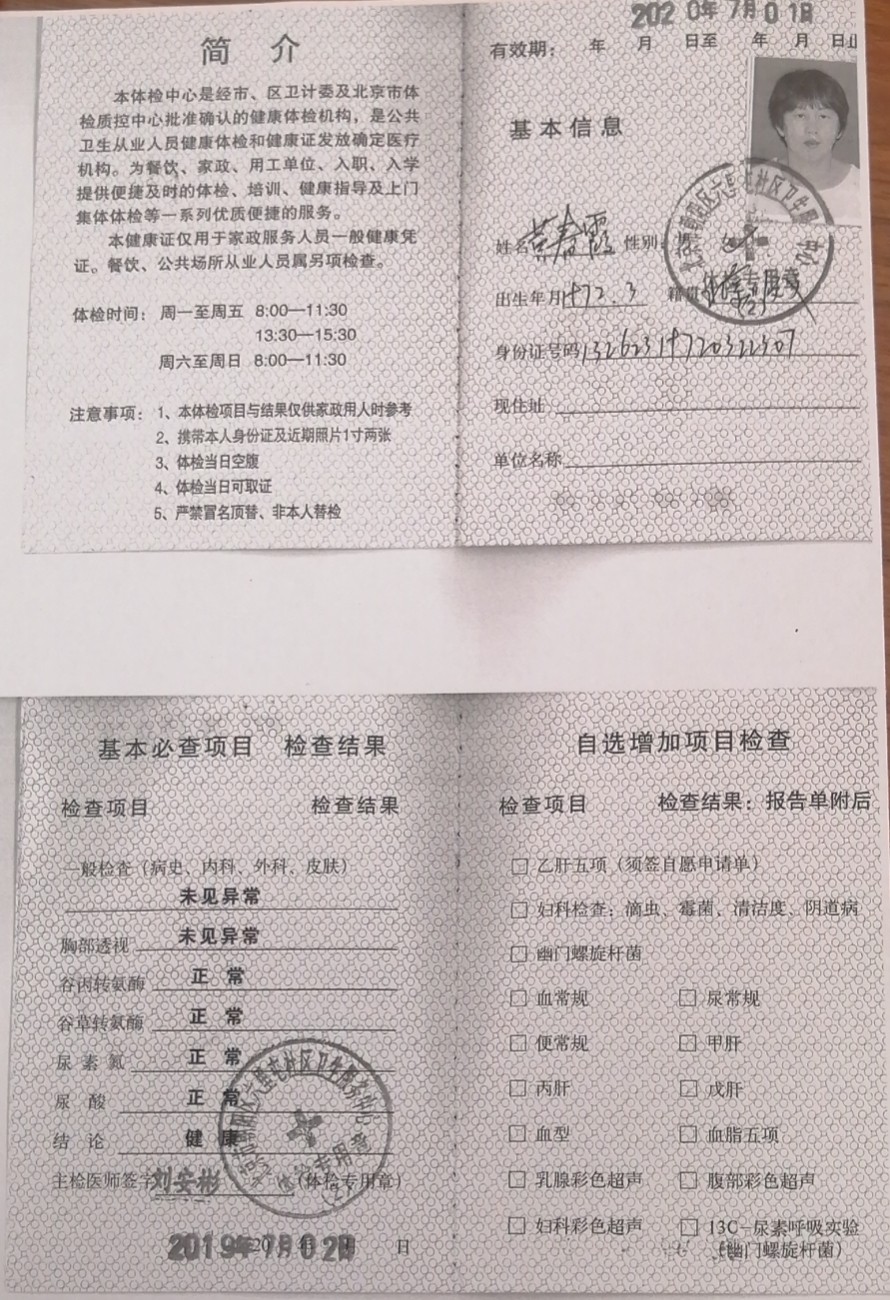 简 介
本体检中心是经市、区卫计委及北京市体
检质控中心批准确认的健康体检机构，是公共
卫生从业人员健康体检和健康证发放确定医疗
机构。为餐饮、家政、用工单位、入职、入学
提供便捷及时的体检、培训、健康指导及上门
集体体检等一系列优质便捷的服务。
本健康证仅用于家政服务人员一般健康凭
证。餐饮、公共场所从业人员属另项检查。
体检时间： 周一至周五 8:00—11:30
13:30—15:30
周六至周日 8:00—11:30
注意事项： 1、本体检项目与结果仅供家政用人时参考
2、携带本人身份证及近期照片1寸两张
3、体检当日空腹
4、体检当日可取证
5、严禁冒名顶替、非本人替检
2020年7月01日
有效期： 年 月 日至 年 月 日止
基本信息
姓名 春霞 性别： 男 女
出生年月 1972.3 籍贯
身份证号码
现住址
单位名称
北京市朝阳区六里屯社区卫生服务中心
体检专用章
(2)
基本必查项目 检查结果
检查项目 检查结果
一般检查（病史、内科、外科、皮肤）
未见异常
胸部透视 未见异常
谷丙转氨酶 正 常
谷草转氨酶 正 常
尿 素 氮 正 常
尿 酸 正 常
结 论 健 康
主检医师签字 刘安彬 （体检专用章）
北京市朝阳区六里屯社区卫生服务中心
体检专用章
(2)
2019年7月02日 日
自选增加项目检查
检查项目 检查结果：报告单附后
□ 乙肝五项（须签自愿申请单）
□ 妇科检查：滴虫、霉菌、清洁度、阴道病
□ 幽门螺旋杆菌
□ 血常规 □ 尿常规
□ 便常规 □ 甲肝
□ 丙肝 □ 戊肝
□ 血型 □ 血脂五项
□ 乳腺彩色超声 □ 腹部彩色超声
□ 妇科彩色超声 □ 13C-尿素呼吸实验
（幽门螺旋杆菌）